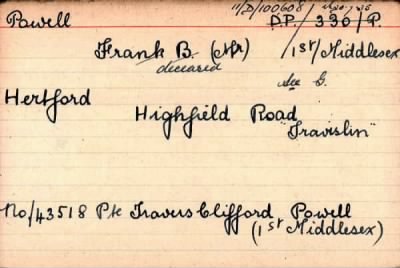 11/D/100608
Powell D.P./330/P.
Frank B. (Mr) 1st/Middlesex
deceased
See G.
Hertford
Highfield Road
"Travislin"
No/43518 Pte Travers Clifford Powell
(1st Middlesex)